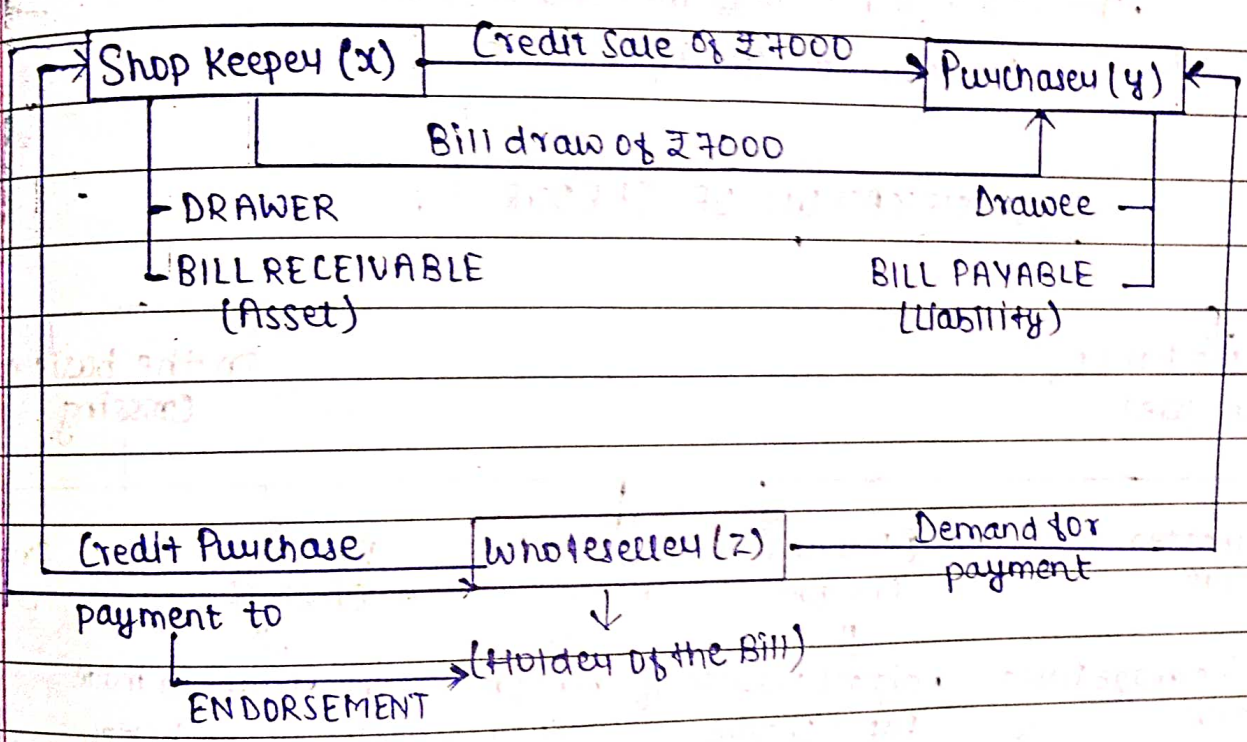 Shop Keeper (x)
Credit Sale of ₹7000
Purchaser (y)
Bill draw of ₹7000
DRAWER
Drawee
BILL RECEIVABLE
(Asset)
BILL PAYABLE
(Liability)
Credit Purchase
Wholeseller (z)
Demand for
payment
payment to
(Holder of the Bill)
ENDORSEMENT